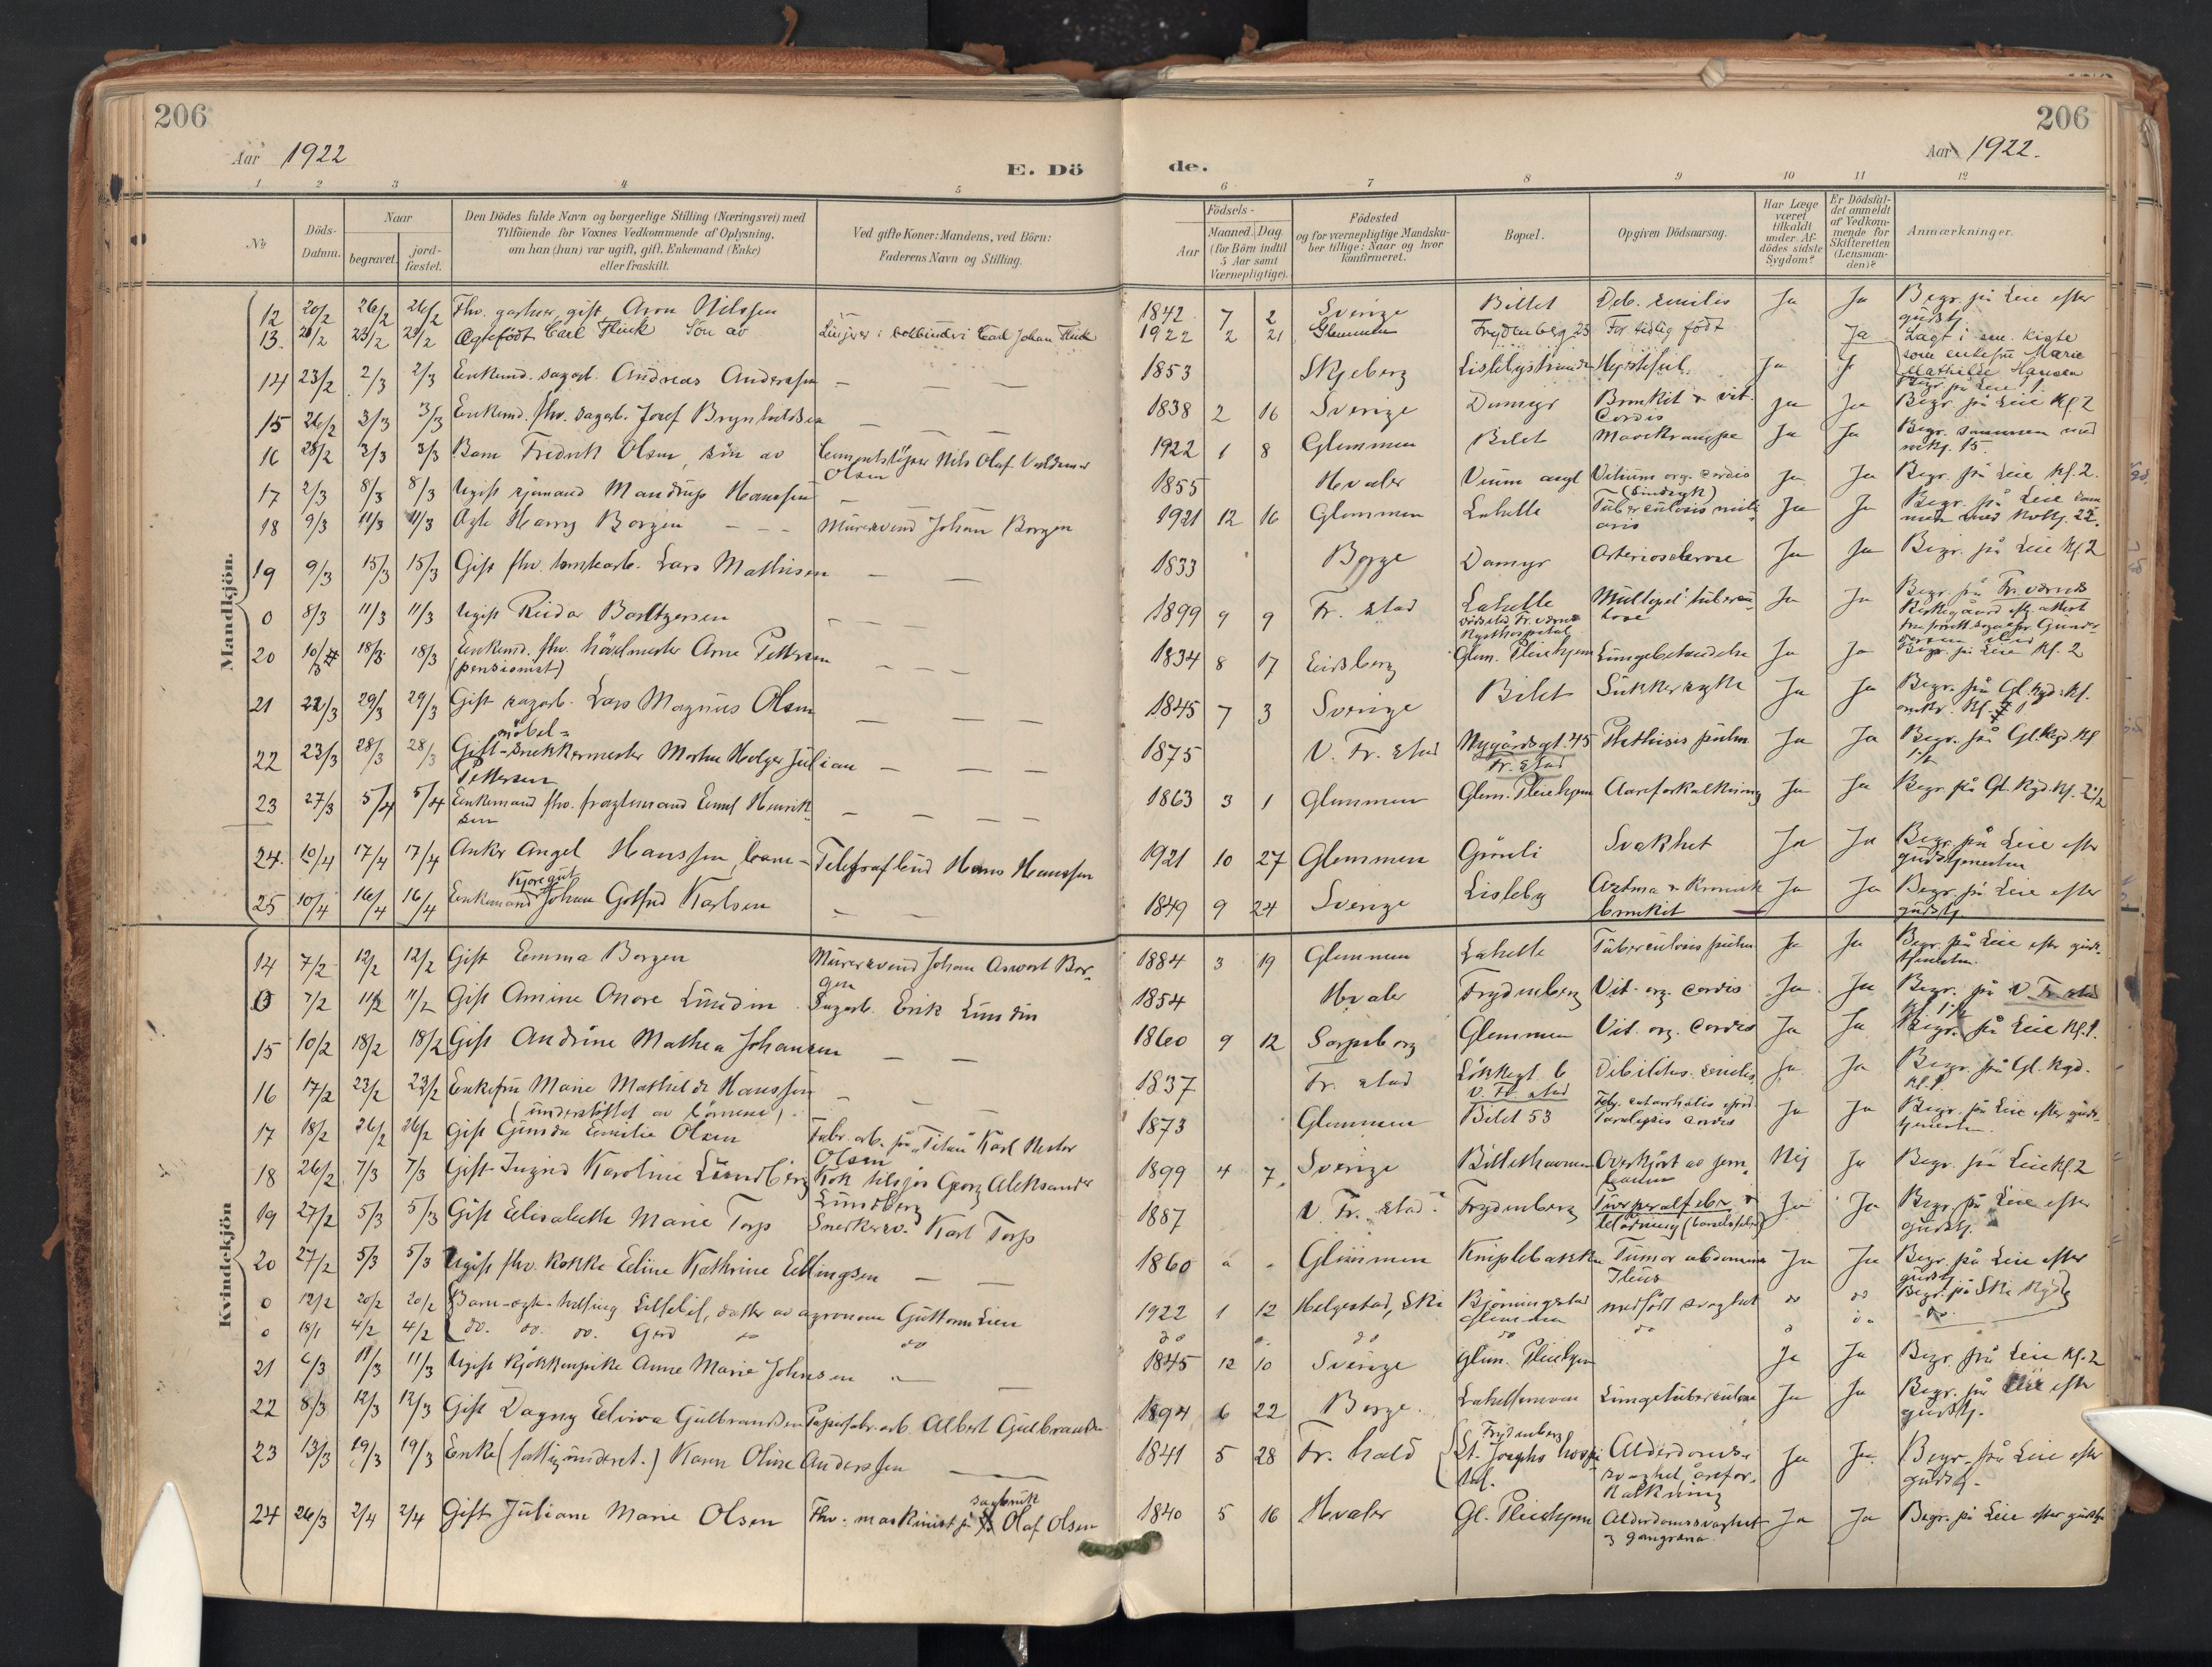 206
206
Aar 1922
E. Dö
de.
Aar 1922.
1 2 3 4 5 6 7 8 9 10 11 12
№
Döds-
Datum.
Naar
begravet.
jord-
fæstet.
Den Dödes fulde Navn og borgerlige Stilling (Næringsvei) med
Tilföiende for Voxnes Vedkommende af Oplysning,
om han (hun) var ugift, gift, Enkemand (Enke)
eller fraskilt.
Ved gifte Koner: Mandens, ved Börn:
Faderens Navn og Stilling.
Födsels-
Aar
Maaned. Dag.
(for Börn indtil
5 Aar samt
Værnepligtige).
Födested
og for værnepligtige Mandska-
ber tillige: Naar og hvor
konfirmeret.
Bopæl.
Opgiven Dödsaarsag.
Har Læge
været
tilkaldt
under Af-
dödes sidste
Sygdom?
Er Dödsfal-
det anmeldt
af Vedkom-
mende for
Skifteretten
(Lensman-
den)?
Anmærkninger.
Mandkjön.
12 20/2 26/2 26/2 Fhv. garver, gift, Aron Nilssen — 1842 7 2 Sverige Billet Deb. senilis Ja Ja Begr. på Leie efter
gudstj.
13. 21/2 23/2 23/2 Ægtefödt Carl Flink Sön av Carl Johan Flink 1922 2 21 Glemmen Frydenberg 23 For tidlig född Ja Lagt i sm. kiste
som enkefru Marie
Mathilde Hansen
14 23/2 2/3 2/3 Enkemd. sagarb. Andreas Anderssen — — — 1853 Skjeberg Lislebystranden Hjertefeil. Ja Ja Begr. på Leie 1.
15 26/2 3/3 3/3 Enkemd. fhv. sagarb. Josef Brynhildsen — — — 1838 2 16 Sverige Damyr Bronkit & vit.
Cordis Ja Ja Begr. på Leie Kl. 2
16 28/2 3/3 3/3 Barn Fredrik Olsen, sön av Cementstöper Nils Olaf Valdemar
Olsen 1922 1 8 Glemmen Bilet Mavekrampe Ja Ja Begr. sammen med
mkj. 15.
17 2/3 8/3 8/3 Ugift sjömand Mandrup Hanssen — 1855 Hvaler Vitium org. cordis
(sindsyk) Ja Ja Begr. på Leie Kl. 2.
18 9/3 11/3 11/3 Ægte Harry Borgen — — — Murersvend Johan Borgen 1921 12 16 Glemmen Lahelle Tuberculosis mili-
aris Ja Ja Begr. på Leie sam
men med kvkj. 22.
19 9/3 15/3 15/3 Gift fhv. Lars Mathisen — — 1833 Borge Damyr Arteriosclerose Ja Ja Begr. på Leie Kl 2
0 8/3 11/3 11/3 Ugift Reidar Baltzersen — — — 1899 9 9 Fr. stad Lahelle
dödsted Fr. værns
Kysthospital Multipel tubercu-
lose Ja Ja Begr. på Fr. værns
Kirkegaard eft. attest
20 10/3 18/3 18/3 Enkemd. fhv. Arne Pettersen
(pensionist) — — — 1834 8 17 Eidsberg Glem. Pleiehjem Lungebetændelse Ja Ja Begr. på Leie Kl. 2
21 22/3 29/3 29/3 Gift sagarb. Lars Magnus Olsen — — — 1845 7 3 Sverige Bilet Sukkersyke Ja Ja Begr. på Gl. Kgd. Kl.
22 23/3 28/3 28/3 Gift møbel-
snekkermester Morten Holger Julian
Pettersen — — — 1875 V. Fr. stad Nygårdsgt. 45
Fr. stad Phthisis pulm. Ja Ja Begr. på Gl. Kgd. Kl.
1 1/2
23 27/3 5/4 5/4 Enkemand fhv. fragtemand Henrik-
sen — — — — 1863 3 1 Glemmen Glem. Pleiehjem Aareforkalkning Ja Ja Begr. på Gl. Kgd. Kl. 2 1/2
24. 10/4 17/4 17/4 Ankr Angel Hanssen, barn — Telegrafbud Hans Hanssen 1921 10 27 Glemmen Gudeli Svakhet Ja Ja Begr. på Leie eft
gudstjenesten
25 10/4 16/4 16/4 Enkemand Kjöregut Johan Gotfred Karlsen — — 1849 9 24 Sverige Lisleby Astma & Kronisk
bronkit Ja Ja Begr. på Leie efter
gudstj.
Kvindekjön
14 7/2 12/2 12/2 Gift Emma Borgen Murersvend Johan Anvort Bor-
gen 1884 3 19 Glemmen Lahelle Tuberculosis pulm Ja Ja Begr. på Leie eft guds-
tjenesten.
0 7/2 11/2 11/2 Gift Amine Onore Lundin Sagarb. Erik Lundin 1854 Hvaler Frydenberg Vit. org. cordis Ja Ja Begr. på V. Fr. stad
Kl. 1 1/2
15 10/2 18/2 18/2 Gift Andrine Mathea Johansen — — 1860 9 12 Sarpsborg Glemmen Vit. org. Cordis Ja Ja Begr. på Leie Kl. 1.
16 17/2 23/2 23/2 Enkefru Marie Mathilde Hanssen
(understöttet av börnene). — — — 1837 Fr. stad Lökkegt. 6
V. Fr. stad Debilitas senilis Ja Ja Begr. på Gl. Kgd.
Kl. 1.
17 18/2 26/2 26/2 Gift Gunda Emilie Olsen Fabr. arb. på "Titan" Karl Nestor
Olsen 1873 Glemmen Bilet 53 Paralysis cordis Ja Ja Begr. på Leie efter guds-
tjenesten.
18 26/2 7/3 7/3 Gift Ingrid Karoline Lundberg Kok tilsjös Georg Aleksander
Lundberg 1899 4 7 Sverige Billethavnen Overkjört av jern-
banen Nej Ja Begr. på Leie Kl. 2
19 27/2 5/3 5/3 Gift Elisabeth Marie Torp Snekkersv. Karl Torp 1887 V. Fr. stad? Frydenberg Puerperalfeber &
blödning (barselfeber) Ja Ja Begr. på Leie efter
gudstj.
20 27/2 5/3 5/3 Ugift fhv. kokke Eline Kathrine Ellingsen — — 1860 " " Glemmen Kniplebakken Tumor abdominis
Ileus Ja Ja Begr. på Leie efter
gudstj.
0 12/2 20/2 20/2 Barn-ægte-tvilling datter av agronom Guttorm Lien 1922 1 12 Helgestad, Ski Björningstad
Glemmen medfödt svaghet do do Begr. på Ski Kgd.
0 18/1 4/2 4/2 do. do. do. Gerd do do do do do
21 6/3 11/3 11/3 Ugift Kjökkenpike Anne Marie Johnsen — — 1845 12 10 Sverige Glem. Pleiehjem Ja Ja Begr. på Leie Kl. 2
22 8/3 12/3 12/3 Gift Dagny Elvira Gulbrandsen Papirfabr. arb. Albert Gulbrandsen 1894 6 22 Borge. Lungetuberculose Ja Ja Begr. på Leie efter
gudstj.
23 13/3 19/3 19/3 Enke (fattigunderst.) Karen Oline Anderssen — 1841 5 28 Fr. hald Frydenberg
St. Josephs hospi-
tal. Alderdoms-
svaghet, årefor-
kalkning Ja Ja Begr. på Leie eft
gudstj.
24 26/3 2/4 2/4 Gift Juliane Marie Olsen Fhv. maskinist på sagbruk Olaf Olsen 1840 5 16 Hvaler Gl. Pleiehjem Alderdomssvaghet
og gangræna Ja Ja Begr. på Leie efter gudstj.